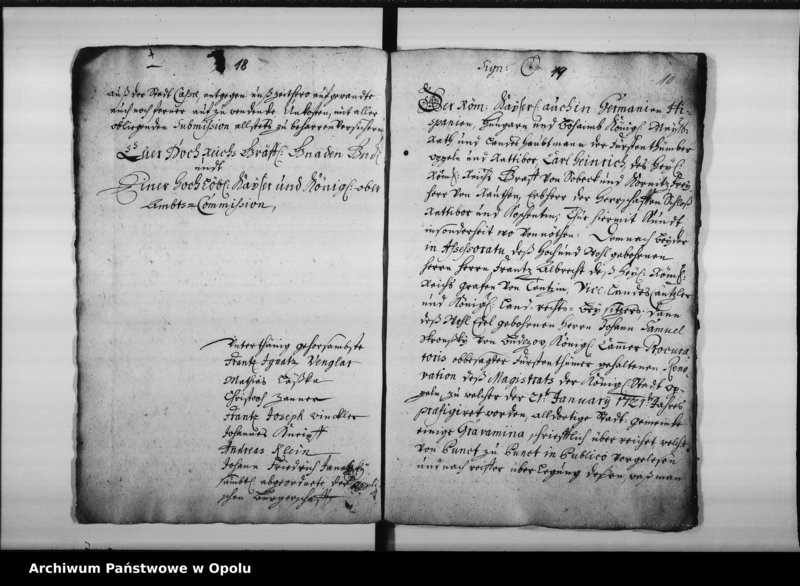 18
auß der Stadt Cassa, entgegen und zeithero aufgewandte
auch noch ferner auf zu wendende Unkosten, mit aller
obliegenden Submission allstets zu beharren versichern,
Euer Hoch Reichs Gräffl: Gnaden Gnd:
undt
Einer Hochlöbl: Kayser und Königl: ober
Ambts=Commission,
Unterthänig gehorsambste
Frantz Ignatz Wenglar
Mathias
Christoph Zanner
Frantz Joseph Winckler
Johannes
Andreas Klein
Johann Friedrich
sämbtl: abgeordnete der
schen Bürgerschafft
Sign: C 19
10
Der Röm: Kayserl: auch in Germanien Hi-
spanien, Hungarn und Böhaimb Königl: Maytt:
Rath und Landes Haubtmann der Fürstenthümber
Oppeln und Rattibor, Carl Heinrich des Heyl:
Röml: Reichs Graff von Sobeck und Kornitz Frey
Herr von Rauthen, Erbherr der Herrschafften Schloß
Rattibor und Koschentin, Thue hiermit Kundt
insonderheit wo vonnöthen: Demnach bey der
in Assessoratu deß Hoch und Wohl gebohrenen
Herrn Herrn Frantz Albrecht deß Heyl: Röml:
Reichs Grafen von Tentzin, Vice-Landes Cantzler
und Königl: Land-rechts-Bey sitzers, dann
deß Wohl Edel gebohrnen Herrn Johann Samuel
von Königl: Cammer Procura
toris obbesagter Fürstenthümer gehaltenen Reno
vation deß Magistrats der Königl: Stadt Op-
peln, zu welcher der 21te January 1721te Jahres
præfigiret worden, alldortige Stadt-gemeinde
einige Gravamina schriefftlich überreichet welche
von Punct zu Punct in Publico vorgelesen
und nach reiffer überlegung dessen, waß man
Archiwum Państwowe w Opolu